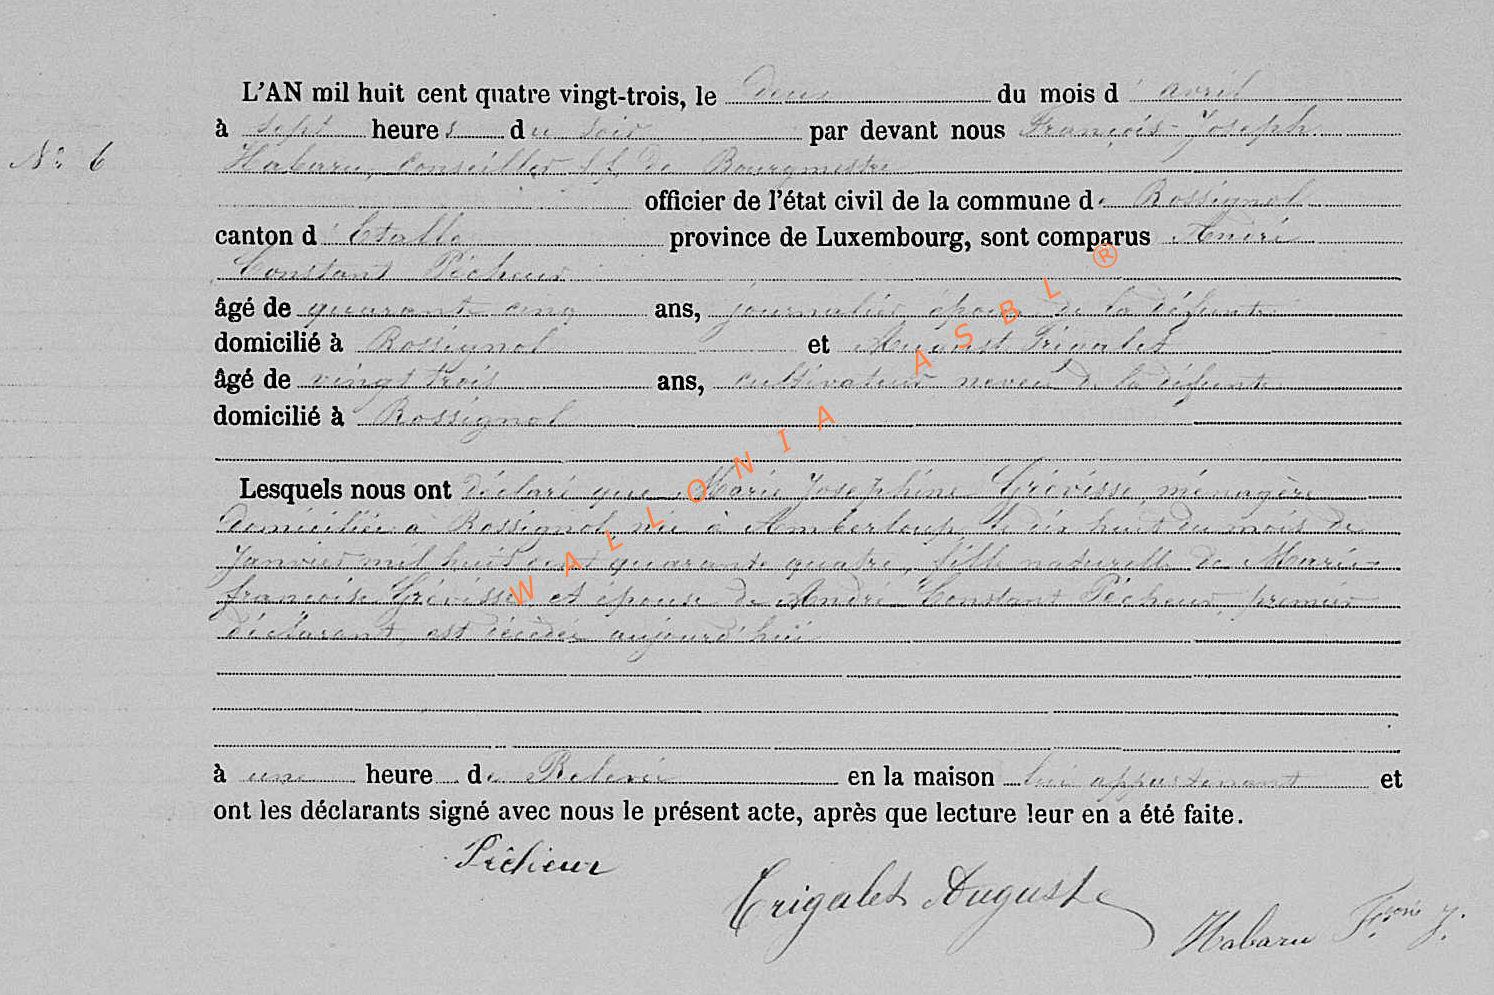 L'AN mil huit cent quatre vingt-trois, le deux du mois d'avril
à sept heures du soir par devant nous François-Joseph
N° 6 Habaru, Conseiller f.f. de Bourgmestre
officier de l'état civil de la commune de Rossignol
canton d'Etalle province de Luxembourg, sont comparus André
Constant Pêcheur
âgé de quarante cinq ans, journalier époux de la défunte
domicilié à Rossignol et August Trigalet
âgé de vingt trois ans, cultivateur neveu de la défunte
domicilié à Rossignol
Lesquels nous ont déclaré que Marie Josephine Grévisse ménagère
domiciliée à Rossignol, née à Amberloup le dix huit du mois de
Janvier mil huit cent quarante quatre, fille naturelle de Marie-
françoise Grévisse et épouse de André Constant Pêcheur, premier
déclarant, est décédée aujourd'hui
à une heure de Relevée en la maison lui appartenant et
ont les déclarants signé avec nous le présent acte, après que lecture leur en a été faite.
Pêcheur
Trigalet Auguste
Habaru F.çois J.
WALLONIA ASBL ®